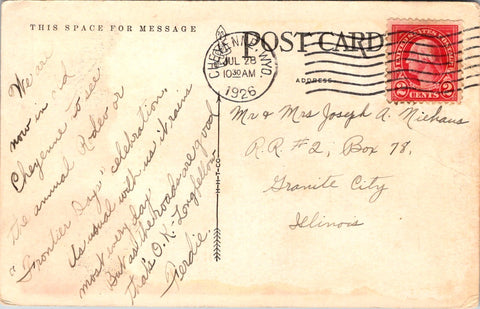 THIS SPACE FOR MESSAGE
We're
now in
Cheyenne to see
the annual Rodeo or
"Frontier Days" celebration.
As usual with us it rains
most every day
But as the roads are good
that's O.K. Longfellow
Ferdie.
H-H-T-CO
POST CARD
ADDRESS
CHEYENNE, WYO.
JUL 28
10 30 AM
1926
UNITED STATES POSTAGE
2 CENTS 2
Mr & Mrs Joseph A. Niehaus
R.R. #2, Box 78,
Granite City
Illinois